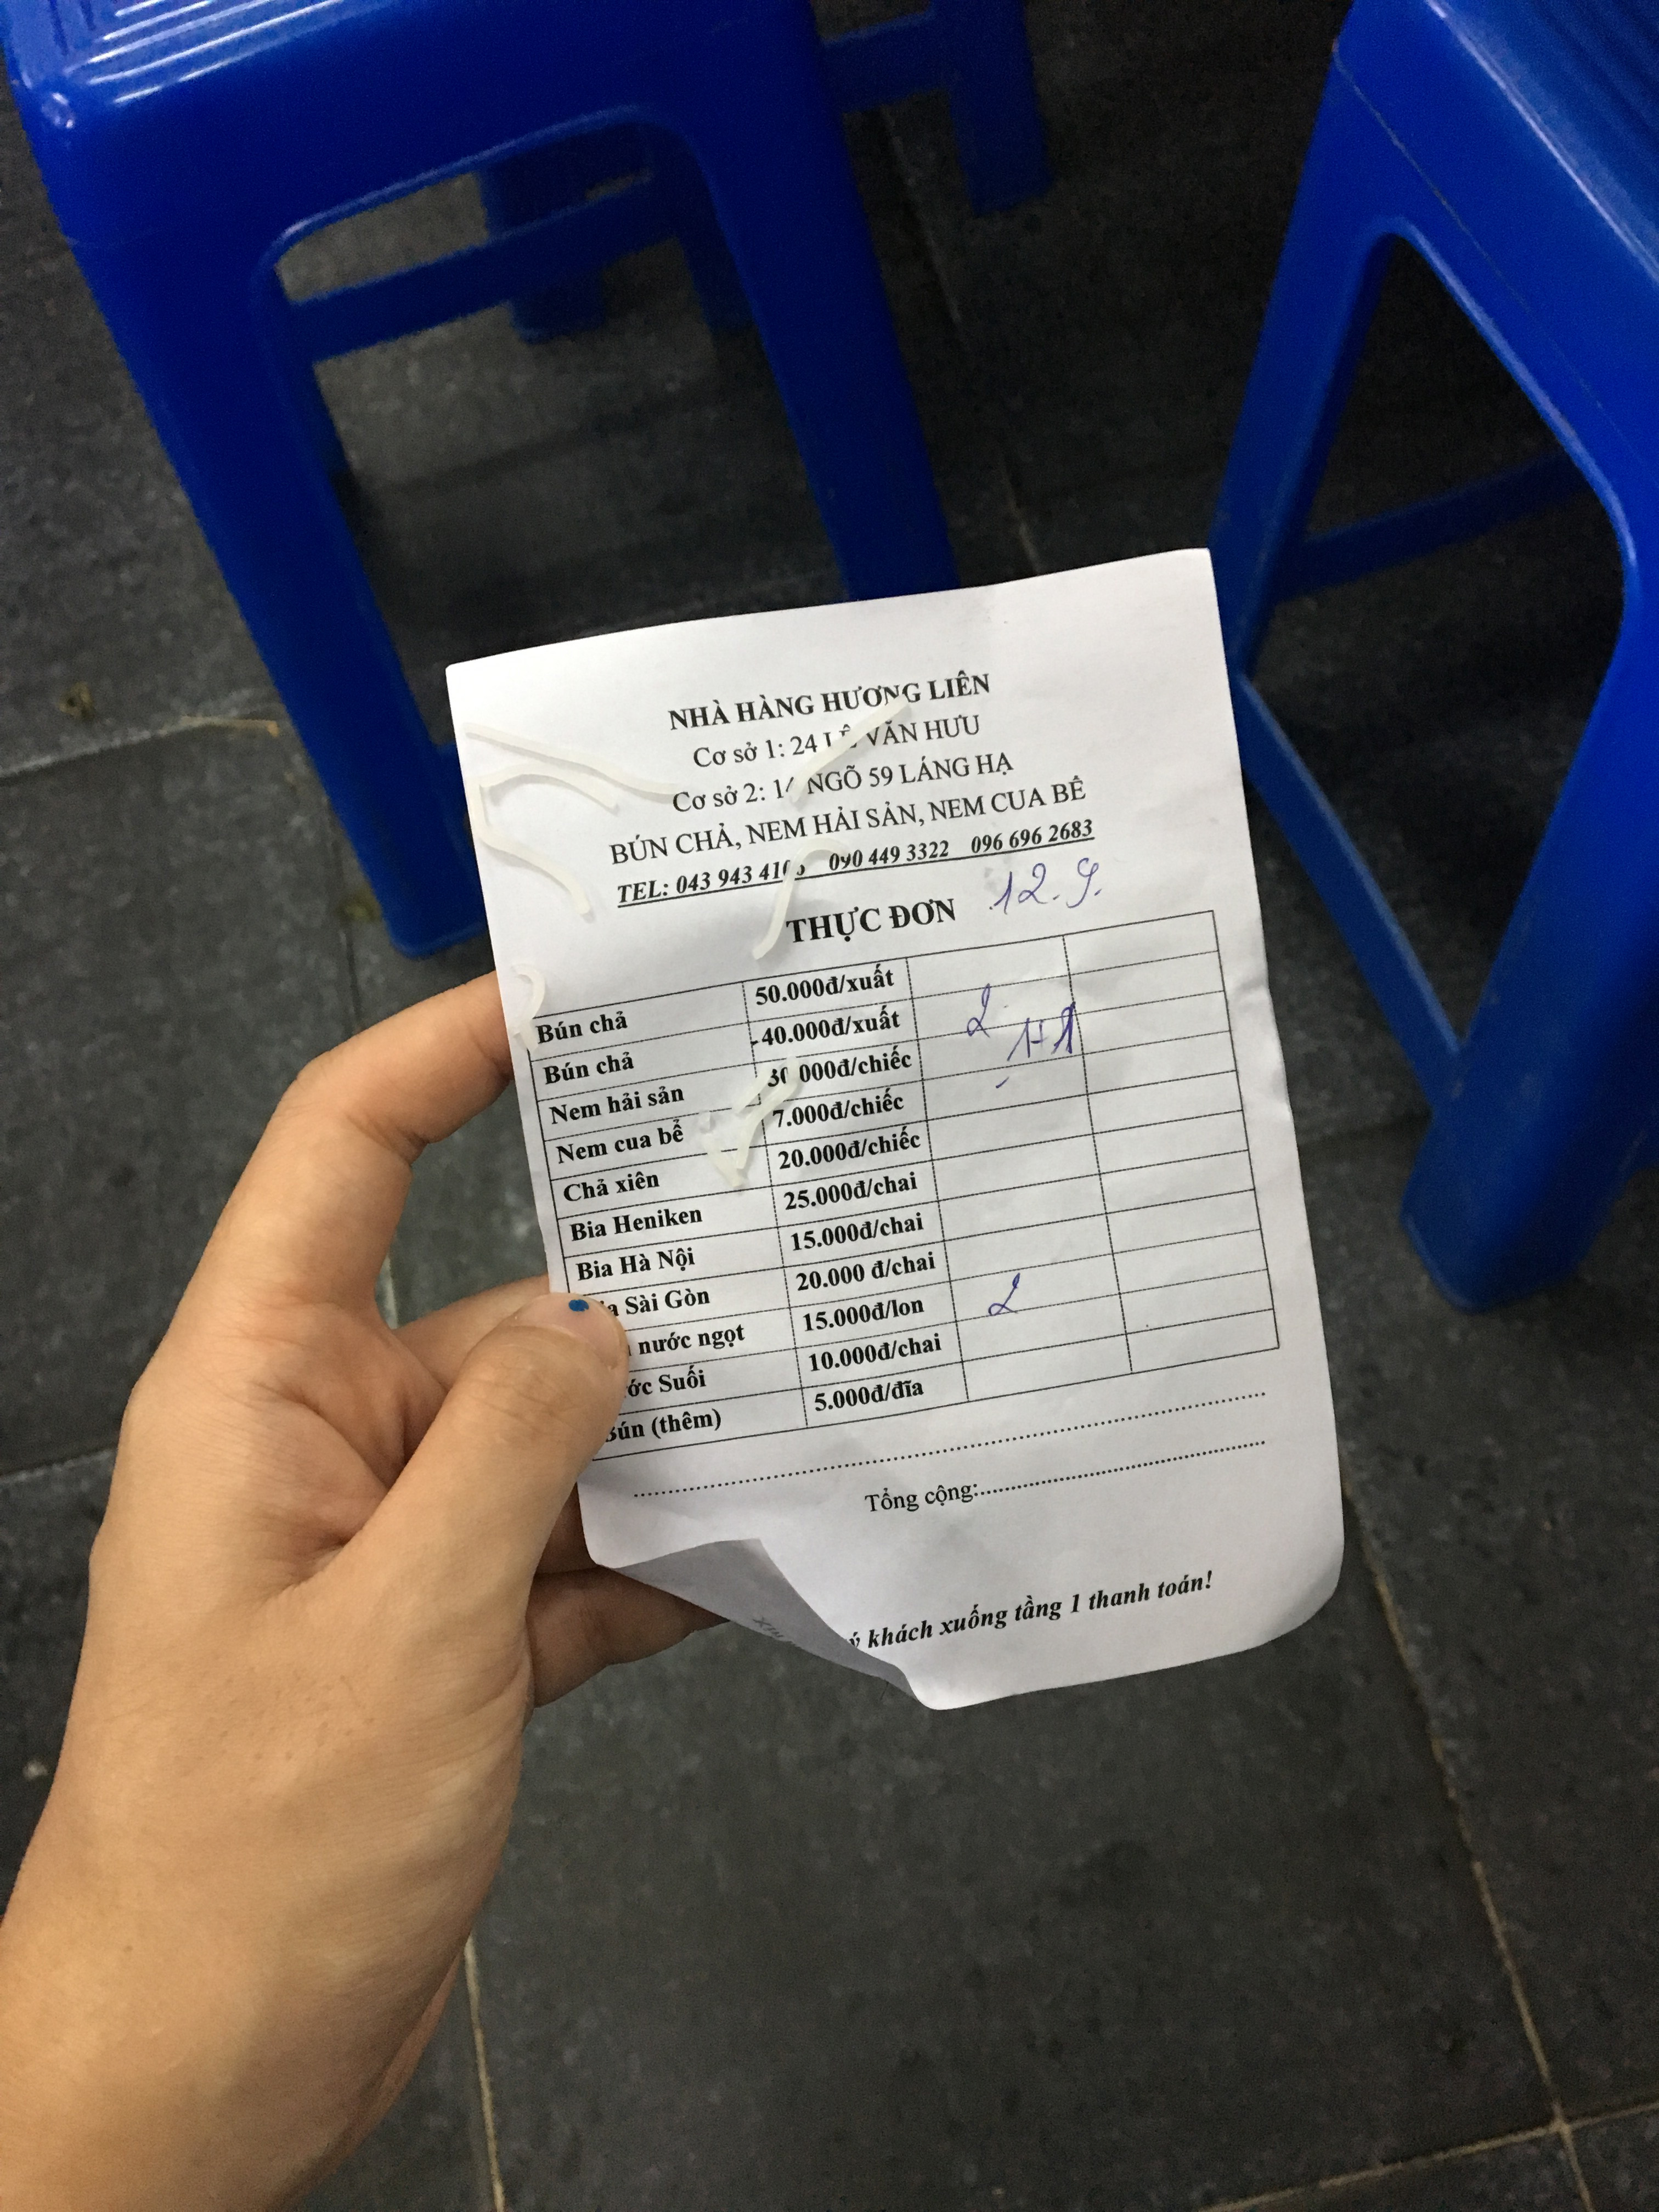 NHÀ HÀNG HƯƠNG LIÊN
Cơ sở 1: 24 LÊ VĂN HƯU
Cơ sở 2: NGÕ 59 LÁNG HẠ
BÚN CHẢ, NEM HẢI SẢN, NEM CUA BỂ
TEL: 043 943 090 449 3322 096 696 2683
THỰC ĐƠN 12.9.
Bún chả 50.000đ/xuất
Bún chả 40.000đ/xuất 2
Nem hải sản 000đ/chiếc
Nem cua bể 7.000đ/chiếc
Chả xiên 20.000đ/chiếc
Bia Heniken 25.000đ/chai
Bia Hà Nội 15.000đ/chai
Sài Gòn 20.000 đ/chai
nước ngọt 15.000đ/lon 2
Suối 10.000đ/chai
Bún (thêm) 5.000đ/đĩa
Tổng cộng:
khách xuống tầng 1 thanh toán!